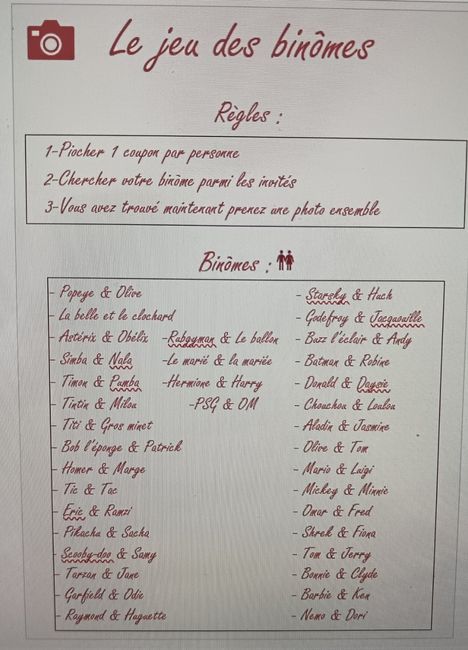 Le jeu des binômes
Règles :
1-Piocher 1 coupon par personne
2-Chercher votre binôme parmi les invités
3-Vous avez trouvé maintenant prenez une photo ensemble
Binômes :
- Popeye & Olive
- La belle et le clochard
- Astérix & Obélix
- Simba & Nala
- Timon & Pumba
- Tintin & Milou
- Titi & Gros minet
- Bob l'éponge & Patrick
- Homer & Marge
- Tic & Tac
- Eric & Ramzi
- Pikachu & Sacha
- Scooby-doo & Samy
- Tarzan & Jane
- Garfield & Odie
- Raymond & Huguette
-Rubgyman & Le ballon
-Le marié & la mariée
-Hermione & Harry
-PSG & OM
- Starsky & Huch
- Godefroy & Jacquouille
- Buzz l'éclair & Andy
- Batman & Robine
- Donald & Daysie
- Chouchou & Loulou
- Aladin & Jasmine
- Olive & Tom
- Mario & Luigi
- Mickey & Minnie
- Omar & Fred
- Shrek & Fiona
- Tom & Jerry
- Bonnie & Clyde
- Barbie & Ken
- Nemo & Dori